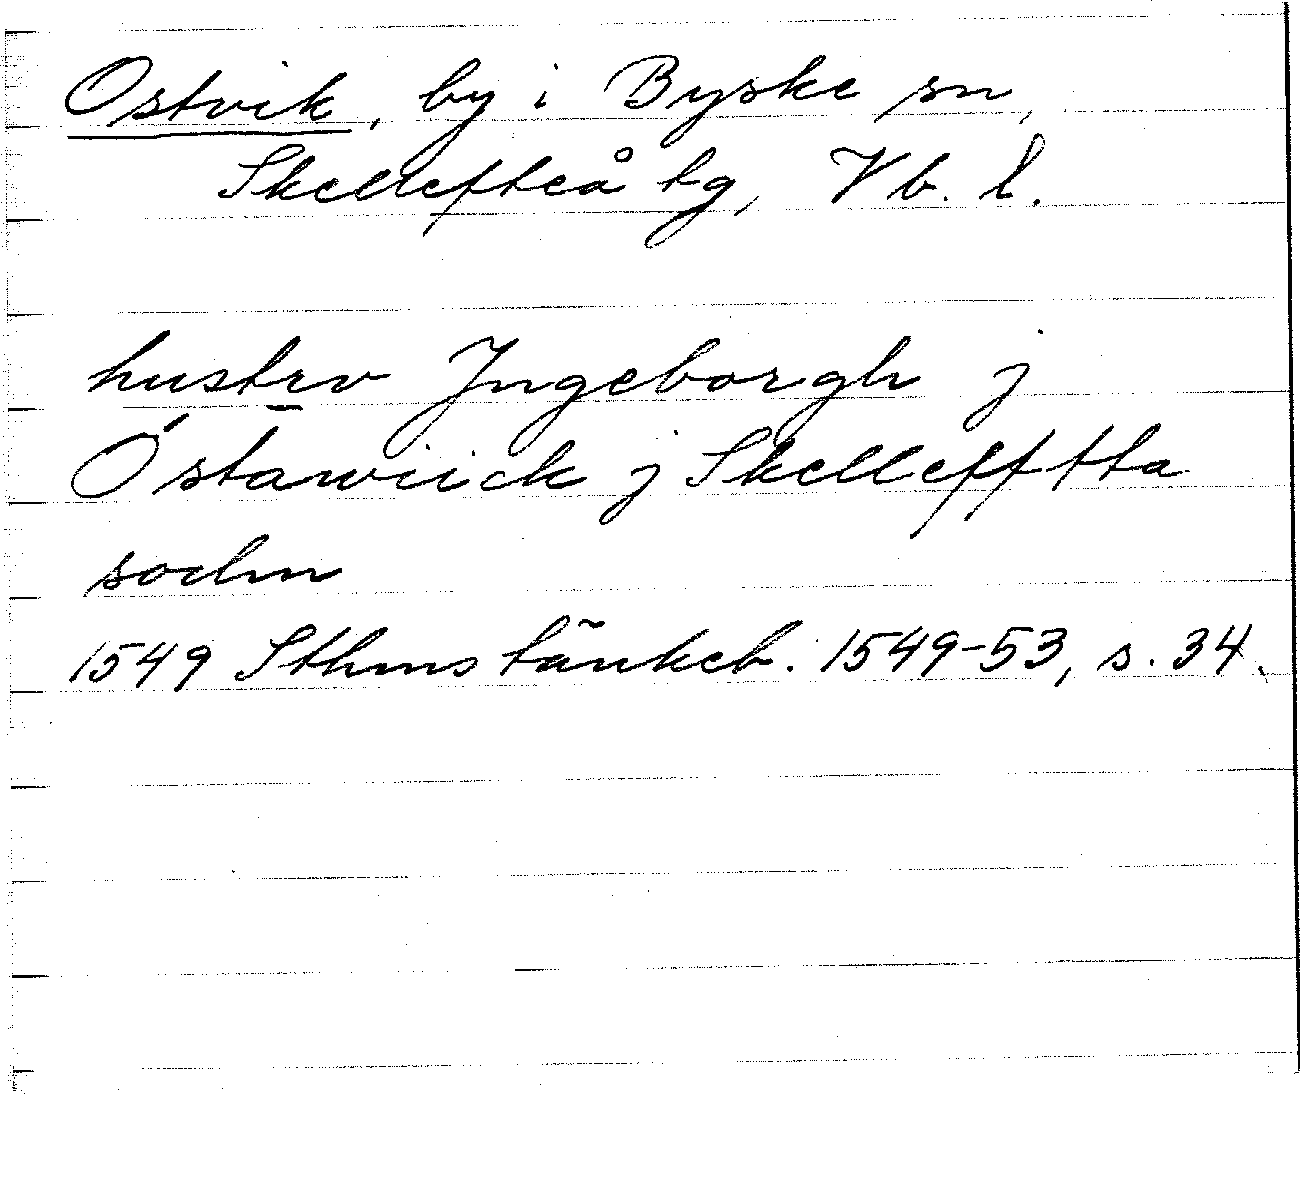 Ostvik, by i Byske sn,
Skellefteå tg, Vb. l.
hustrv Jngeborgh j
Óstawiick j Skellefftta
sochn
1549 Sthms tänkeb. 1549-53, s. 34.